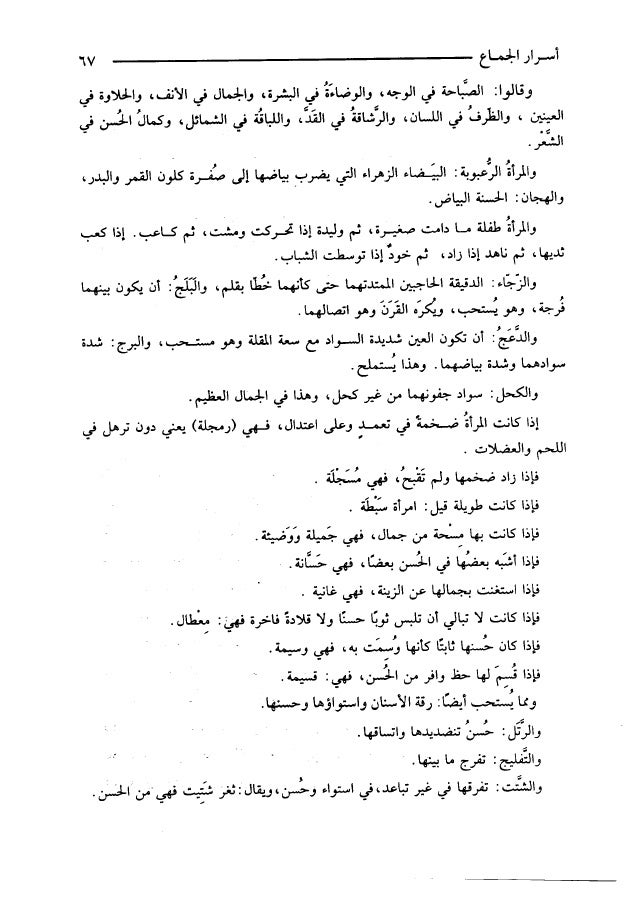 أسرار الجماع ٦٧
وقالوا: الصَّباحة في الوجه، والوضاءَةُ في البشرة، والجمال في الأنف، والحلاوة في
العينين ، والظّرفُ في اللسان، والرَّشاقةُ في القَدَّ، واللباقُة في الشمائل، وكمالُ الحُسن في
الشَّعْر.
والمرأةُ الرُّعبوبة: البيَضاء الزهراء التي يضرب بياضها إلى صفُرة كلون القمر والبدر،
والهجان: الحسنة البياض.
والمرأةُ طفلة ما دامت صغيرة، ثم وليدة إذا تحركت ومشت، ثم كاعب. إذا كعب
ثديها، ثم ناهد إذا زاد، ثم خودٌ إذا توسطت الشباب.
والزّجّاء: الدقيقة الحاجبين الممتدتهما حتى كأنهما خُطّا بقلم، والبَلَجُ: أن يكون بينهما
فُرجة، وهو يُستحب، ويُكرَه القَرَنَ وهو اتصالهما.
والدَّعَجُ: أن تكون العين شديدة السواد مع سعة المقلة وهو مستحب، والبرج: شدة
سوادهما وشدة بياضهما. وهذا يُستملح.
والكحل: سواد جفونهما من غير كحل، وهذا في الجمال العظيم.
إذا كانت المرأةُ ضخمةً في تعمدٍ وعلى اعتدال، فهي (رمجلة) يعني دون ترهل في
اللحم والعضلات .
فإذا زاد ضخمها ولم تَقْبحُ، فهي مُسَجْلَة .
فإذا كانت طويلة قيل: امرأة سَبْطَة .
فإذا كانت بها مِسْحة من جمال، فهي جَميلة وَوَضيئة.
فإذا أشبَه بعضُها في الحُسن بعضًا، فهي حَسَّانة.
فإذا استغنت بجمالها عن الزينة، فهي غانية .
فإذا كانت لا تبالي أن تلبس ثوبًا حسنًا ولا قلادةً فاخرة فهي: مِعْطال.
فإذا كان حُسنها ثابتًا كأنها وُسِمَت به، فهي وسيمة.
فإذا قُسِمَ لها حظ وافر من الحُسن، فهي: قسيمة.
ومما يُستحب أيضًا: رقة الأسنان واستواؤها وحسنها.
والرَّتَل: حُسنُ تنضديدها واتساقها.
والتَّفليج: تفرج ما بينها.
والشتَّت: تفرقها في غير تباعد،في استواء وحُسن،ويقال:ثغر شتَيت فهي من الحُسن.